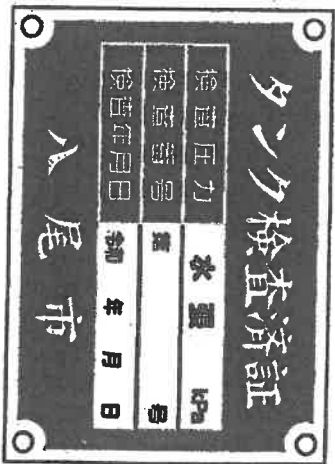 タンク検査済証
検査圧力 水 kPa
検査番号 第 号
検査年月日 年 月 日
八尾市